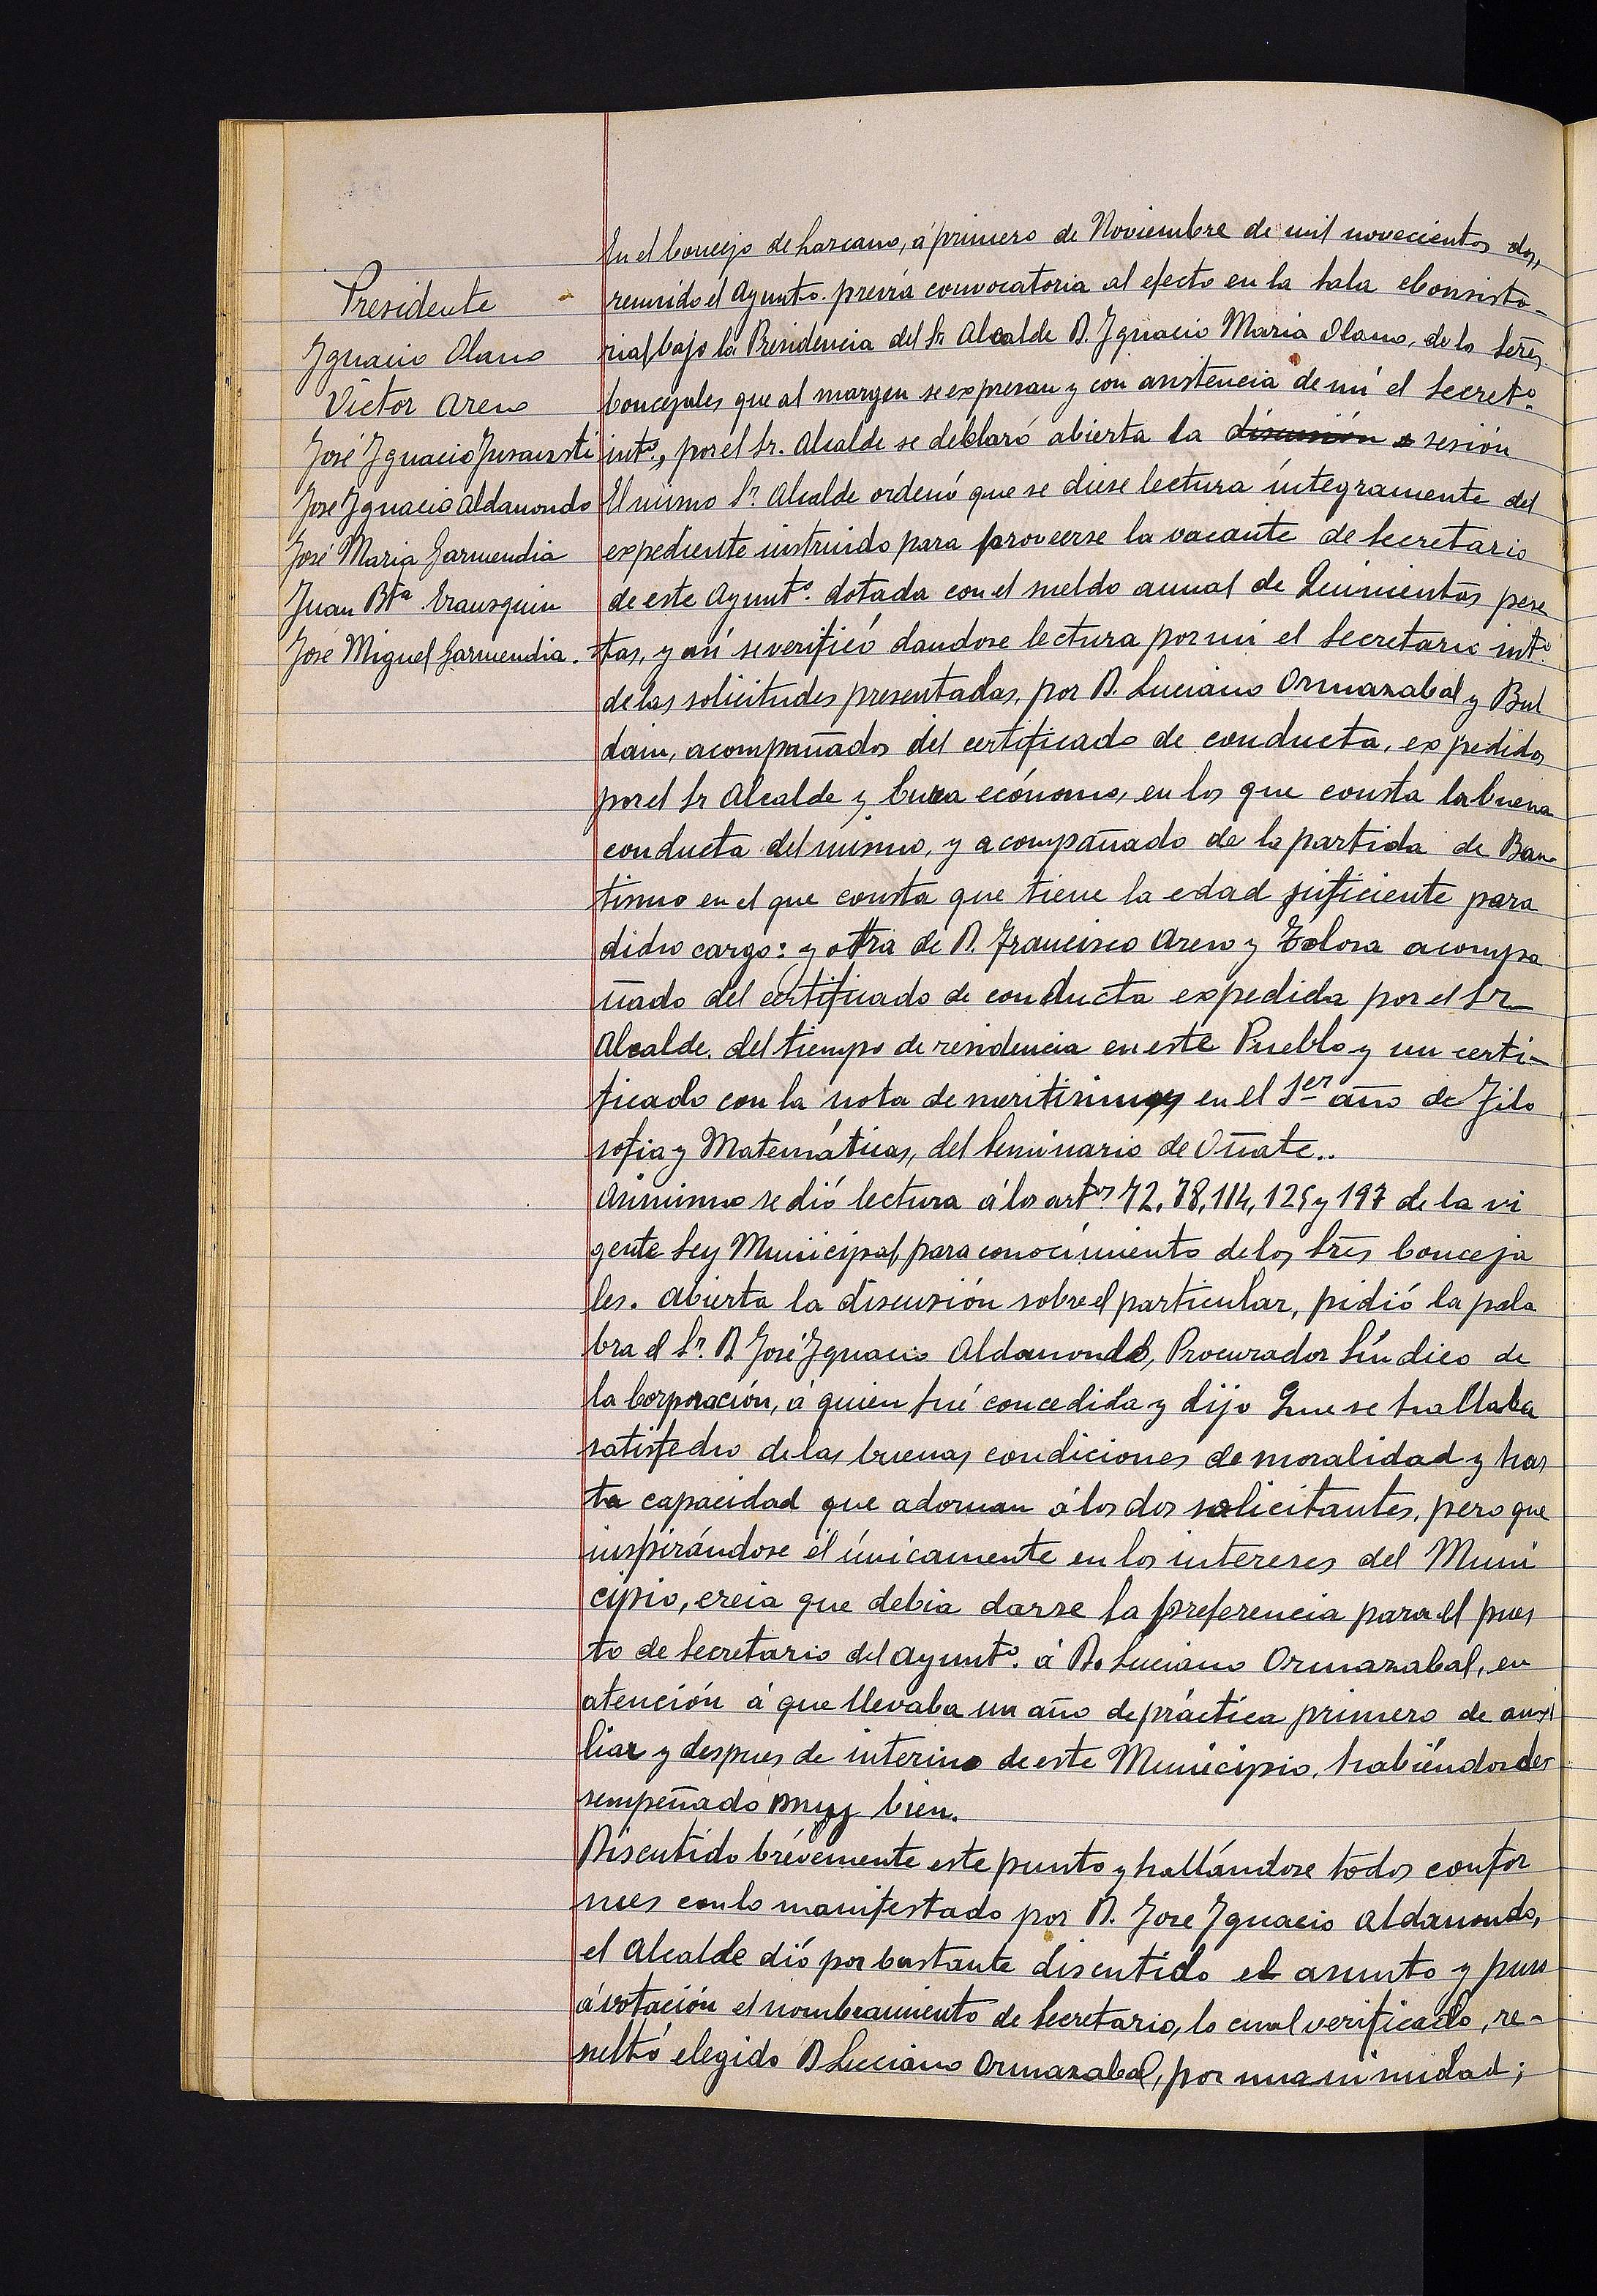 Presidente
Ygnacio Olano
Victor Areno
José Ygnacio
José Ygnacio Aldamondo
José Maria Garmendia
Juan Btª Erausquin
José Miguel Garmendia.
En el Concejo de Larcano, á primero de Noviembre de mil novecientos dos,
reunido el Ayuntº. previa convocatoria al efecto en la Sala Consisto-
rial, bajo la Presidencia del Sr. Alcalde D. Ygnacio Maria Olano, de lo Señes
Concejales que al margen se expresan y con asistencia de mi el Secretº.
intº., por el Sr. Alcalde se declaró abierta la discusión sesión
El mismo Sr. Alcalde ordenó que se diese lectura integramente del
expediente instruido para proveerse la vacante de Secretario
de este Ayuntº. dotada con el sueldo anual de Quinientas pese
tas, y asi se verificó dandose lectura por mi el Secretario intº.
de las solicitudes presentadas, por D. Luciano Ormazabal y Bul
dain, acompañados del certificado de conducta, expedidos
por el Sr Alcalde y Cura ecónomo, en los que consta la buena
conducta del mismo, y acompañado de la partida de Bau-
tismo en el que consta que tiene la edad suficiente para
dicho cargo: y otra de D. Francisco Areno y Tolosa acompa
ñado del certificado de conducta expedida por el Sr
Alcalde, del tiempo de residencia en este Pueblo y un certi-
ficado con la nota de en el 1er año de Filo
sofia y Matemáticas, del Seminario de Oñate..
Asimismo se dió lectura á los artos. 72, 78, 114, 125 y 197 de la vi
gente Ley Municipal, para conocimiento de los Srēs Conceja
les. Abierta la discusión sobre el particular, pidió la pala
bra el Sr. D José Ygnacio Aldamondo, Procurador Síndico de
la Corporación, á quien fué concedida y dijo Que se hallaba
satisfecho de las buenas condiciones de moralidad y has
ta capacidad que adornan á los dos solicitantes, pero que
inspirándose él únicamente en los intereses del Muni
cipio, creia que debia darse la preferencia para el pues
to de Secretario del Ayuntº. á D. Luciano Ormazabal, en
atención á que llevaba un año de práctica primero de auxi
liar y despues de interino de este Municipio, habiéndos des
sempeñado muy bien.
Discutido brévemente este punto y hallándose todos confor
mes con lo manifestado por D. Jose Ygnacio Aldamondo,
el Alcalde dió por bastante discutido el asunto y puso
á votación el nombramiento de Secretario, lo cual verificado, re-
sultó elegido D Luciano Ormazabal, por unanimidad;